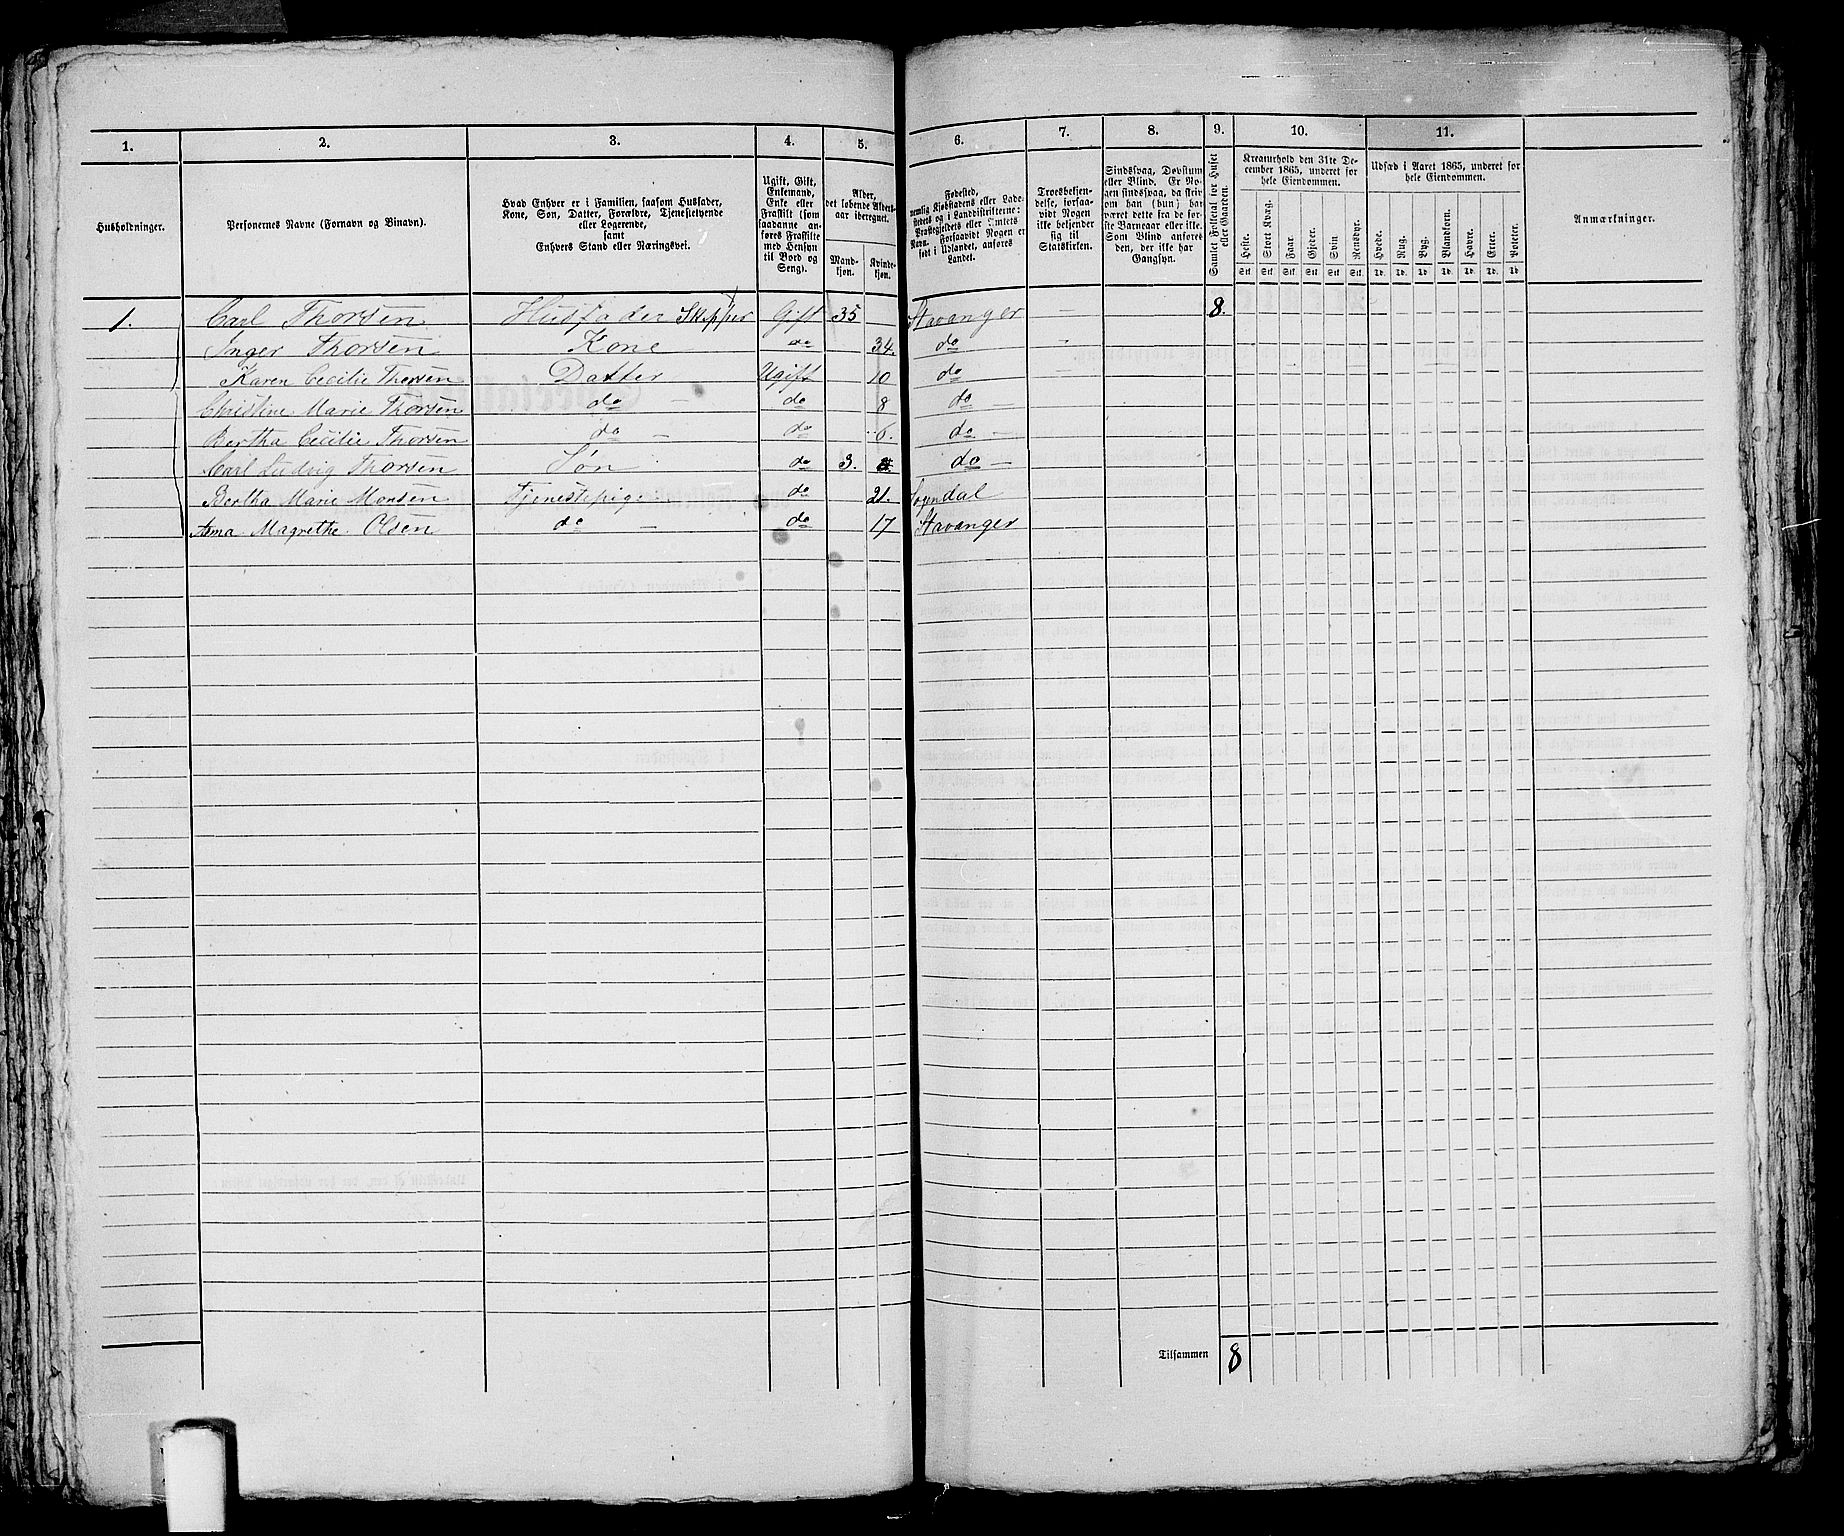 1. 2. 3. 4. 5. 6. 7. 8. 9. 10. 11.
Husholdninger.
Personernes Navne (Fornavn og Binavn).
Hvad Enhver er i Familien, saasom Husfader,
Kone, Søn, Datter, Forældre, Tjenestetyende
eller Logerende,
samt
Enhvers Stand eller Næringsvei.
Ugift, Gift,
Enkemand,
Enke eller
Fraskilt (som
saadanne an-
føres Fraskilte
med Hensyn
til Bord og
Seng).
Alder,
det løbende Alders-
aar iberegnet.
Mand-
kjøn.
Kvinde-
kjøn.
Fødested,
nemlig Kjøbstadens eller Lade-
stedets og i Landdistrikterne:
Præstegjeldets eller Amtets
Navn. Forsaavidt Nogen er
født i Udlandet, anføres
Landet.
Troesbekjen-
delse, forsaa-
vidt Nogen
ikke bekjender
sig til
Statskirken.
Sindssvag, Døvstum
eller Blind. Er No-
gen sindssvag, da skriv
om han (hun) har
været dette fra de for-
ste Barneaar eller ikke.
Som Blind anføres
den, der ikke har
Gangsyn.
Samlet Folketal for Huset
eller Gaarden.
Kreaturhold den 31te De-
cember 1865, underet for
hele Eiendommen.
Heste. Stort Kvæg. Faar. Gjeder. Svin Rensdyr.
Stk. Stk. Stk. Stk. Stk. Stk.
Udsæd i Aaret 1865, underet for
hele Eiendommen.
Hvede. Rug. Byg. Blandkorn. Havre. Erter. Poteter.
Td. Td. Td. Td. Td. Td. Td.
Anmærkninger.
1. Carl Thorsen Husfader Skipper Gift 35 Stavanger — 8.
Inger Thorsen Kone do 34. do
Karen Cecilie Thorsen Datter Ugift 10 do —
Christine Marie Thorsen do — do 8 do —
Bertha Cecilie Thorsen do — do 6. do —
Carl Ludvig Thorsen Søn do 3. do —
Bertha Marie Monsen Tjenestepige do 21. Sogndal
Anna Magrethe Olsen do — do 17 Stavanger
Tilsammen 8